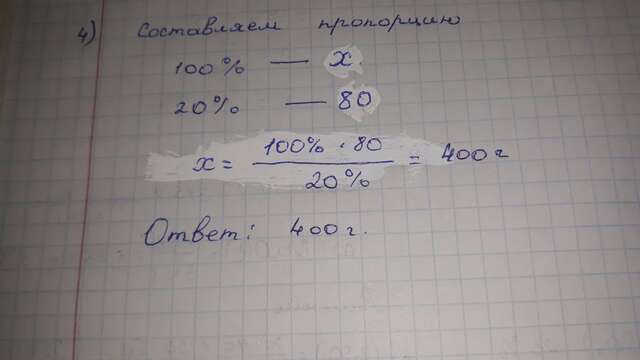 4) Составляем пропорцию
100% — x
20% — 80
x = 100% · 80 / 20% = 400 г
Ответ: 400 г.